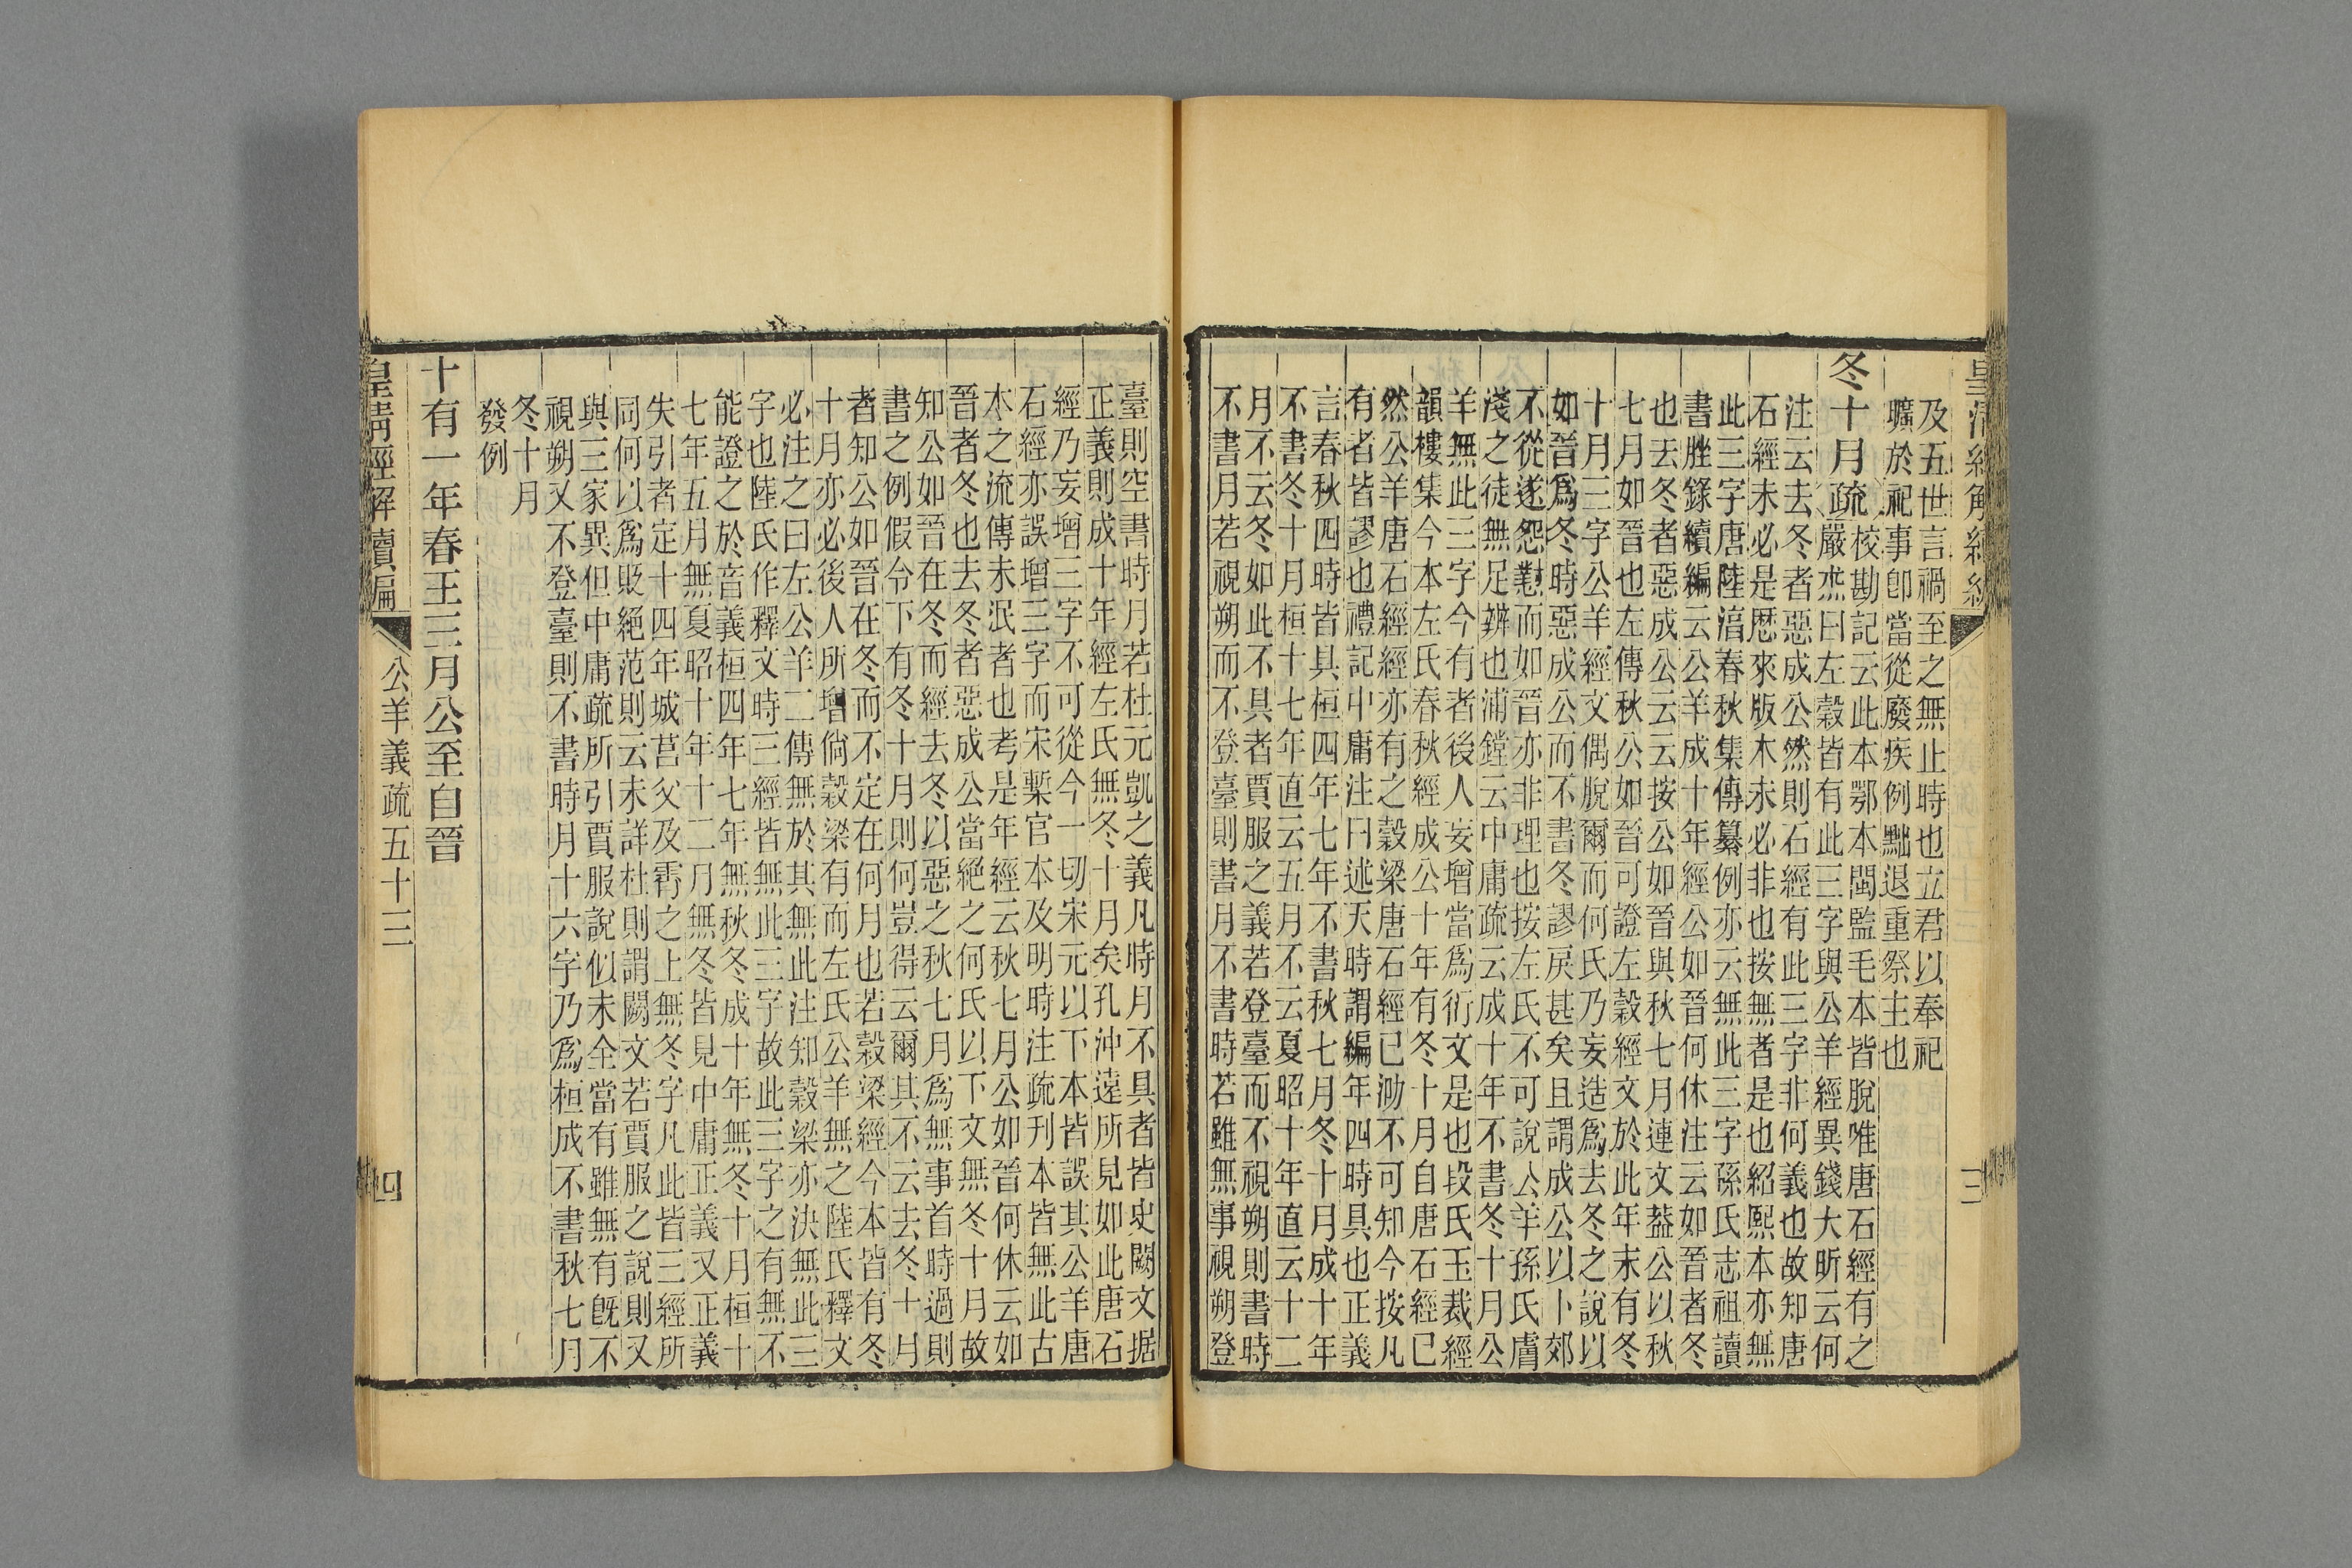 及五世言禍至之無止時也立君以奉祀
曠於祀事卽當從廢疾例黜退重祭主也
冬十月疏
校勘記云此本鄂本閩監毛本皆脫唯唐石經有之
嚴杰曰左穀皆有此三字與公羊經異錢大昕云何
注云去冬者惡成公然則石經有此三字非何義也故知唐
石經未必是厯來版木未必非也按無者是也紹熙本亦無
此三字唐陸淳春秋集傳纂例亦云無此三字孫氏志祖讀
書脞錄續編云公羊成十年經公如晉何休注云如晉者冬
也去冬者惡成公云云按公如晉與秋七月連文葢公以秋
七月如晉也左傳秋公如晉可證左穀經文於此年末有冬
十月三字公羊經文偶脫爾而何氏乃妄造爲去冬之說以
如晉爲冬時惡成公而不書冬謬戾甚矣且謂成公以卜郊
不從遂怨懟而如晉亦非理也按左氏不可說公羊孫氏膚
淺之徒無足辨也浦鏜云中庸疏云成十年不書冬十月公
羊無此三字今有者後人妄增當爲衍文是也段氏玉裁經
韻樓集今本左氏春秋經成公十年有冬十月自唐石經已
然公羊唐石經經亦有之穀梁唐石經已泐不可知今按凡
有者皆謬也禮記中庸注曰述天時謂編年四時具也正義
言春秋四時皆具桓四年七年不書秋七月冬十月成十年
不書冬十月桓十七年直云五月不云夏昭十年直云十二
月不云冬如此不具者賈服之義若登臺而不視朔則書時
不書月若視朔而不登臺則書月不書時若雖無事視朔登
臺則空書時月若杜元凱之義凡時月不具者皆史闕文据
正義則成十年經左氏無冬十月矣孔沖遠所見如此唐石
經乃妄增三字不可從今一切宋元以下本皆誤其公羊唐
石經亦誤增三字而宋槧官本及明時注疏刊本皆無此古
本之流傳未泯者也考是年經云秋七月公如晉何休云如
晉者冬也去冬者惡成公當絕之何氏以下文無冬十月故
知公如晉在冬而經去冬以惡之秋七月爲無事首時過則
書之例假令下有冬十月則何豈得云爾其不云去冬十月
者知公如晉在冬而不定在何月也若穀梁經今本皆有冬
十月亦必後人所增倘穀梁有而左氏公羊無之陸氏釋文
必注之曰左公羊二傳無於其無此注知穀梁亦決無此三
字也陸氏作釋文時三經皆無此三字故此三字之有無不
能證之於音義桓四年七年無秋冬成十年無冬十月桓十
七年五月無夏昭十年十二月無冬皆見中庸正義又正義
失引者定十四年城莒父及霄之上無冬字凡此皆三經所
同何以爲貶絕范則云未詳杜則謂闕文若賈服之說則又
與三家異但中庸疏所引賈服說似未全當有雖無有旣不
視朔又不登臺則不書時月十六字乃爲桓成不書秋七月
冬十月
發例
十有一年春王三月公至自晉
皇清經解續編
公羊義疏五十三
四